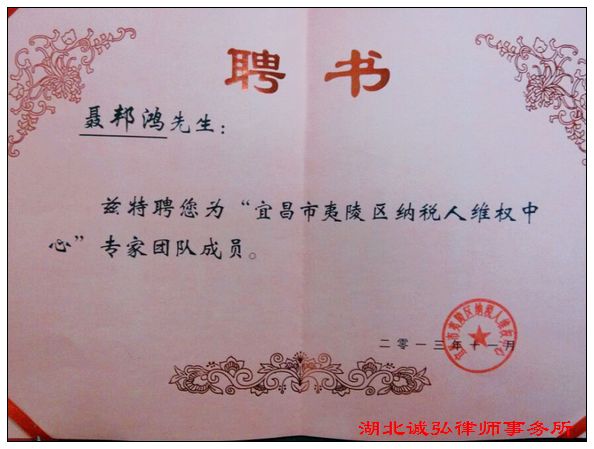 聘书
聂邦鸿先生：
兹特聘您为“宜昌市夷陵区纳税人维权中
心”专家团队成员。
宜昌市夷陵区纳税人维权中心
二零一三年十一月
湖北诚弘律师事务所